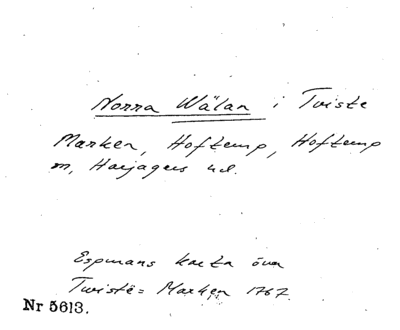 Norra Wälan i Tviste
Marken, Hoftemp, Hoftemp
m, Harjagers hd.
Espmans karta över
Twiste= Marken 1767.
Nr 5613.